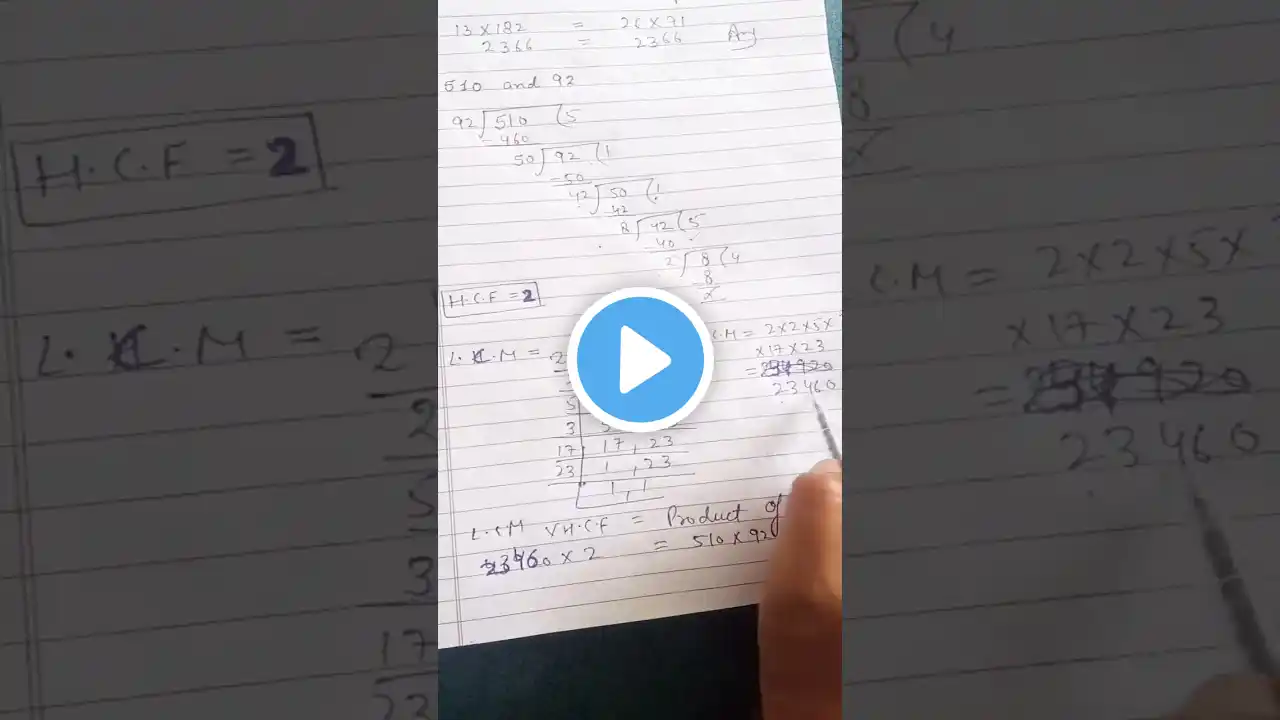 13 × 182 = 26 × 91
2366 = 2366 Ans
510 and 92
92 510 (5
- 460
50 92 (1
- 50
42 50 (1
42
8 42 (5
- 40
2 8 (4
8
×
H.C.F = 2
L.C.M = 2
C.M = 2×2×5×
×17×23
=
23460
5
3
17 17, 23
23 1, 23
1, 1
L.C.M × H.C.F = Product of
23460 × 2 = 510 × 92